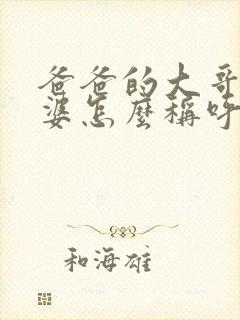 爸爸的大哥
婆怎麼稱呼
和海雄